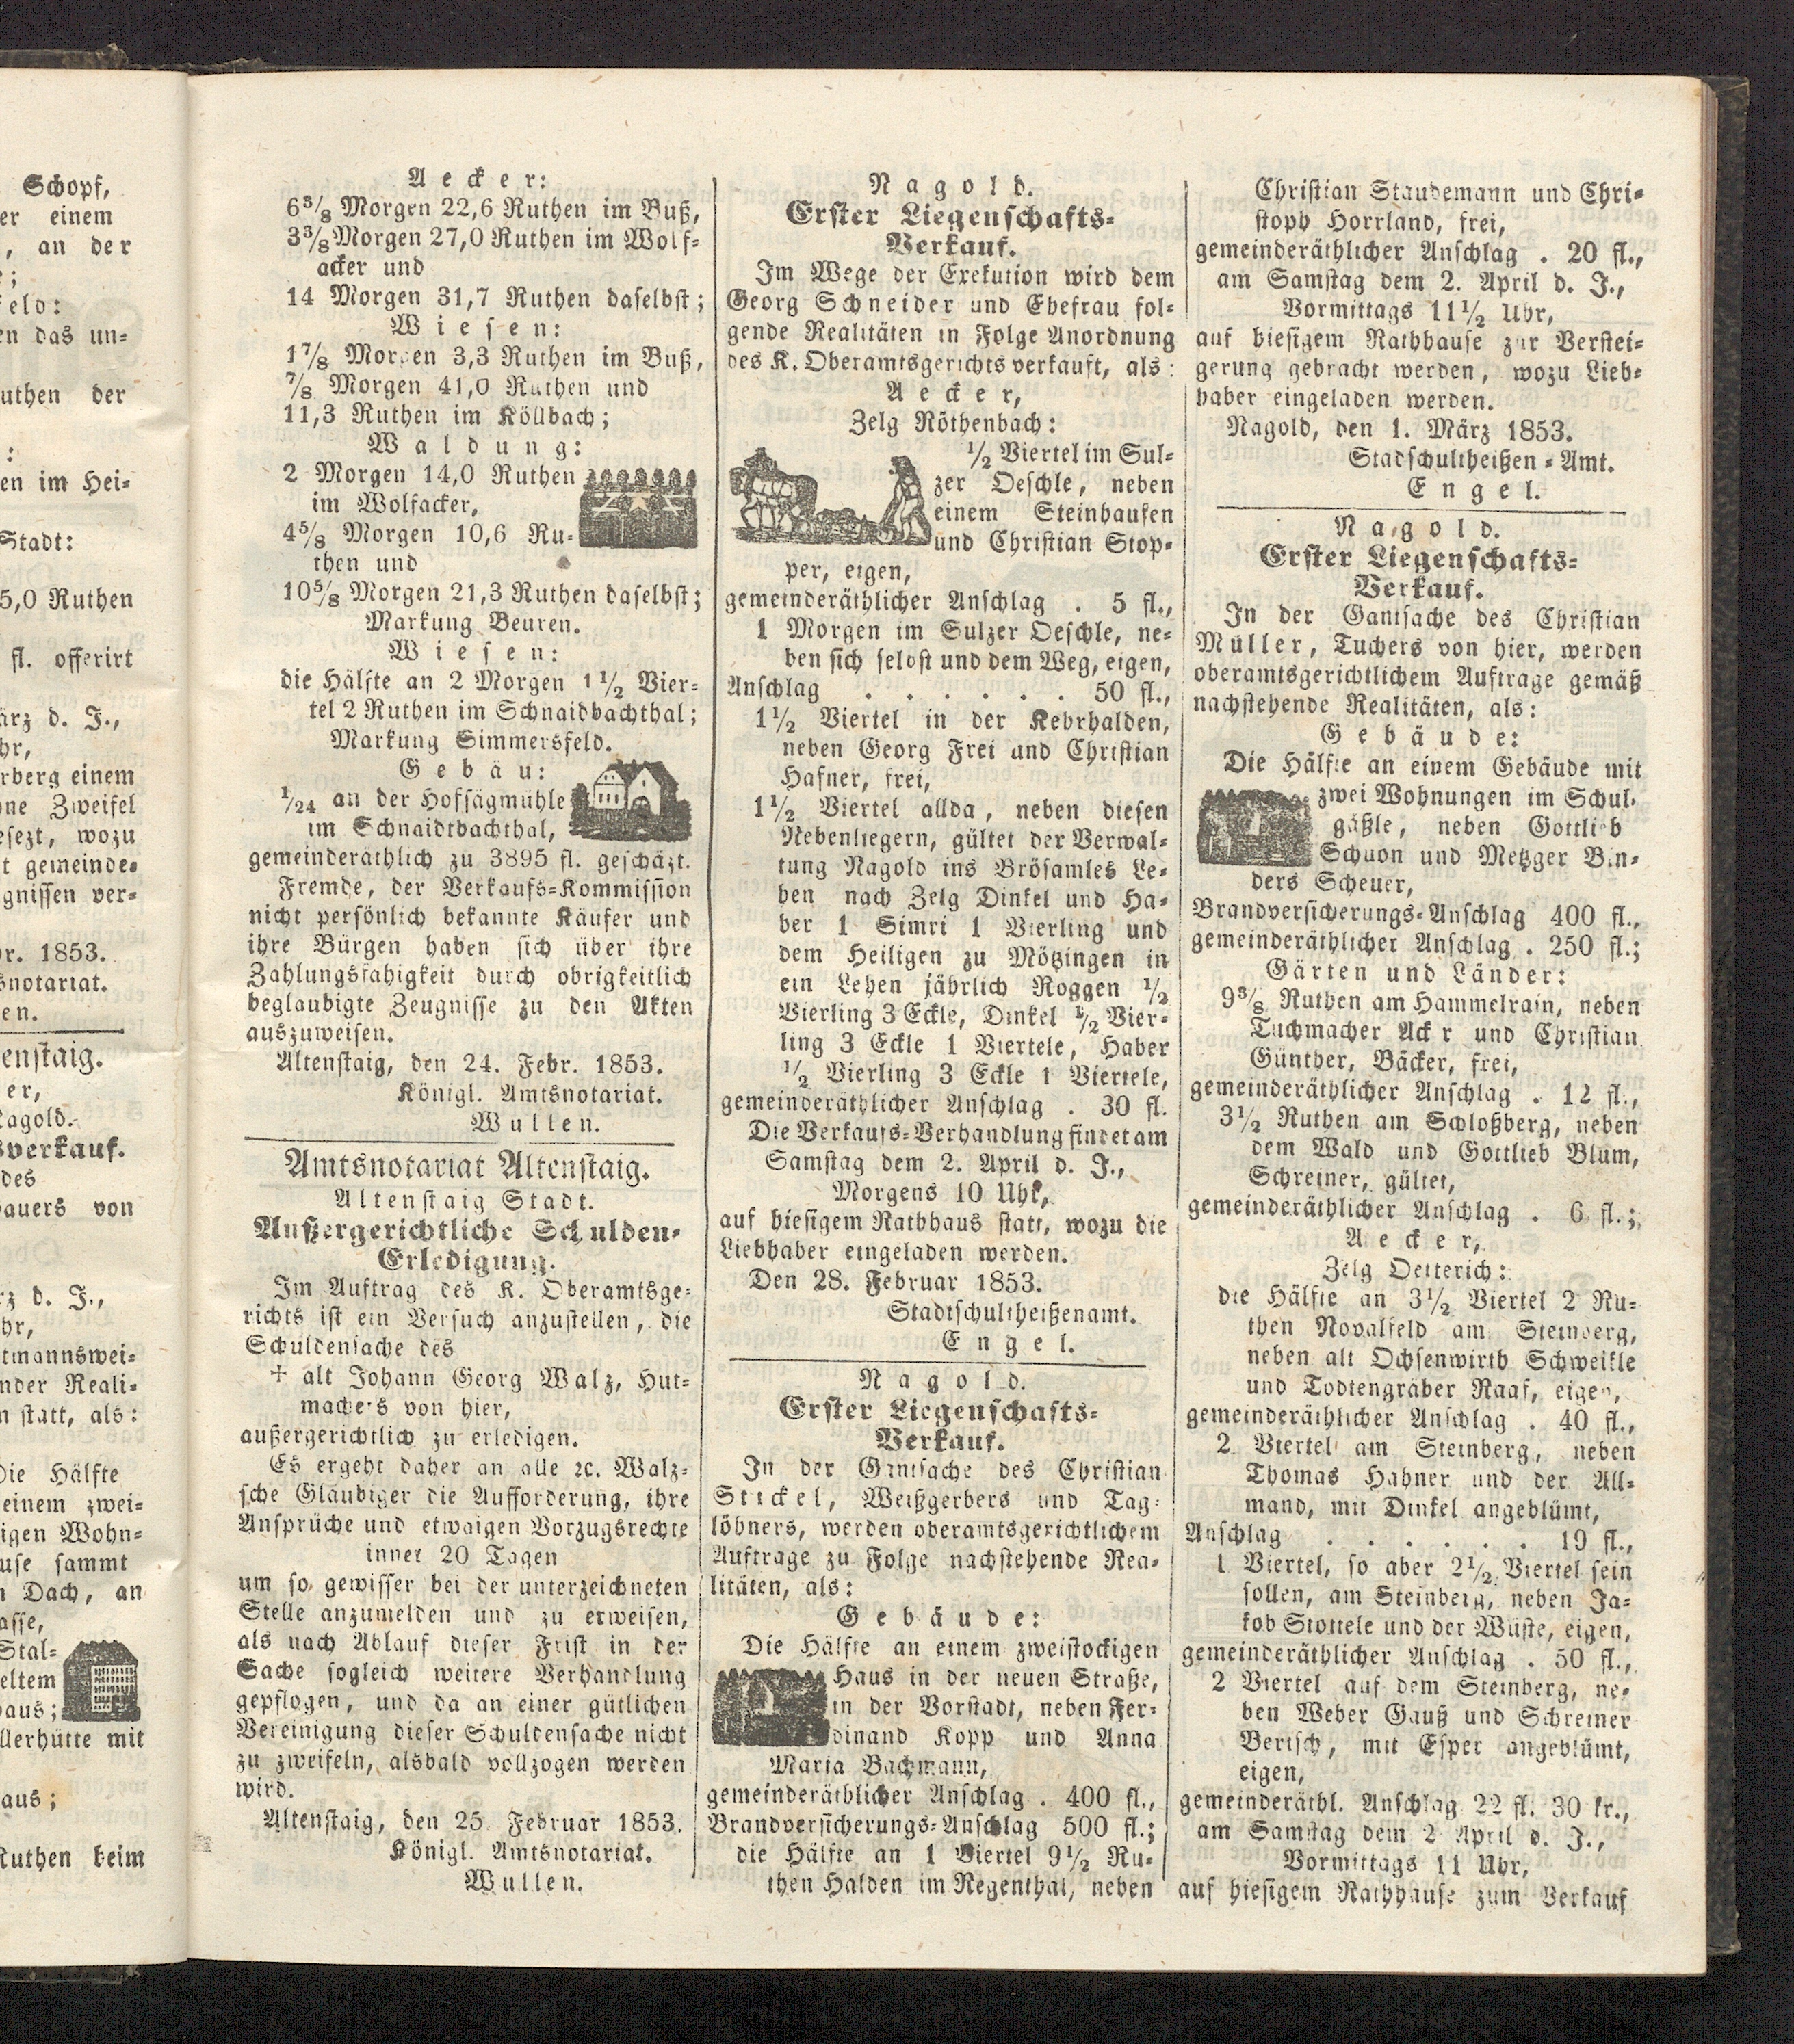 Schopf,
er einem
, an der
e;
feld:
en das un-
uthen der
:
en im Hei-
Stadt:
5,0 Ruthen
fl. offerirt
ärz d. J.,
hr,
rberg einem
one Zweifel
esezt, wozu
t gemeinde-
gnissen ver-
r. 1853.
snotariat.
en.
enstaig.
er,
agold.
sverkauf.
des
auers von
rz d. J.,
hr,
tmannswei-
nder Reali-
n statt, als:
Die Hälfte
einem zwei-
igen Wohn-
use sammt
n Dach, an
asse,
Stal-
eltem
aus;
llerhütte mit
aus;
Ruthen beim
Aecker:
6⅜ Morgen 22,6 Ruthen im Buß,
3⅜ Morgen 27,0 Ruthen im Wolf-
acker und
14 Morgen 31,7 Ruthen daselbst;
Wiesen:
1⅞ Morgen 3,3 Ruthen im Buß,
⅞ Morgen 41,0 Ruthen und
11,3 Ruthen im Köllbach;
Waldung:
2 Morgen 14,0 Ruthen
im Wolfacker,
4⅝ Morgen 10,6 Ru-
then und
10⅝ Morgen 21,3 Ruthen daselbst;
Markung Beuren.
Wiesen:
die Hälfte an 2 Morgen 1½ Vier-
tel 2 Ruthen im Schnaidbachthal;
Markung Simmersfeld.
Gebäu:
1/24 an der Hofsägmühle
im Schnaidtbachthal,
gemeinderäthlich zu 3895 fl. geschäzt.
Fremde, der Verkaufs-Kommission
nicht persönlich bekannte Käufer und
ihre Bürgen haben sich über ihre
Zahlungsfähigkeit durch obrigkeitlich
beglaubigte Zeugnisse zu den Akten
auszuweisen.
Altenstaig, den 24. Febr. 1853.
Königl. Amtsnotariat.
Wullen.
Amtsnotariat Altenstaig.
Altenstaig Stadt.
Außergerichtliche Schulden-
Erledigung.
Im Auftrag des K. Oberamtsge-
richts ist ein Versuch anzustellen, die
Schuldensache des
† alt Johann Georg Walz, Hut-
machers von hier,
außergerichtlich zu erledigen.
Es ergeht daher an alle ꝛc. Walz-
sche Gläubiger die Aufforderung, ihre
Ansprüche und etwaigen Vorzugsrechte
innet 20 Tagen
um so gewisser bei der unterzeichneten
Stelle anzumelden und zu erweisen,
als nach Ablauf dieser Frist in der
Sache sogleich weitere Verhandlung
gepflogen, und da an einer gütlichen
Vereinigung dieser Schuldensache nicht
zu zweifeln, alsbald vollzogen werden
wird.
Altenstaig, den 25. Februar 1853.
Königl. Amtsnotariat.
Wullen.
Nagold.
Erster Liegenschafts-
Verkauf.
Im Wege der Exekution wird dem
Georg Schneider und Ehefrau fol-
gende Realitäten in Folge Anordnung
des K. Oberamtsgerichts verkauft, als:
Aecker,
Zelg Röthenbach:
½ Viertel im Sul-
zer Oeschle, neben
einem Steinhaufen
und Christian Stop-
per, eigen,
gemeinderäthlicher Anschlag . 5 fl.,
1 Morgen im Sulzer Oeschle, ne-
ben sich selbst und dem Weg, eigen,
Anschlag . . . . . . 50 fl.,
1½ Viertel in der Kehrhalden,
neben Georg Frei und Christian
Hafner, frei,
1½ Viertel allda, neben diesen
Nebenliegern, gültet der Verwal-
tung Nagold ins Brösamles Le-
hen nach Zelg Dinkel und Ha-
ber 1 Simri 1 Vierling und
dem Heiligen zu Mötzingen in
ein Lehen jährlich Roggen ½
Vierling 3 Eckle, Dinkel ½ Vier-
ling 3 Eckle 1 Viertele, Haber
½ Vierling 3 Eckle 1 Viertele,
gemeinderäthlicher Anschlag . 30 fl.
Die Verkaufs-Verhandlung findet am
Samstag dem 2. April d. J.,
Morgens 10 Uhr,
auf hiesigem Rathhaus statt, wozu die
Liebhaber eingeladen werden.
Den 28. Februar 1853.
Stadtschultheißenamt.
Engel.
Nagold.
Erster Liegenschafts-
Verkauf.
In der Gantsache des Christian
Stickel, Weißgerbers und Tag-
löhners, werden oberamtsgerichtlichem
Auftrage zu Folge nachstehende Rea-
litäten, als:
Gebäude:
Die Hälfte an einem zweistockigen
Haus in der neuen Straße,
in der Vorstadt, neben Fer-
dinand Kopp und Anna
Maria Bachmann,
gemeinderäthlicher Anschlag . 400 fl.,
Brandversicherungs-Anschlag 500 fl.;
die Hälfte an 1 Viertel 9½ Ru-
then Halden im Regenthal, neben
Christian Staudemann und Chri-
stoph Horrland, frei,
gemeinderäthlicher Anschlag . 20 fl.,
am Samstag dem 2. April d. J.,
Vormittags 11½ Uhr,
auf hiesigem Rathhause zur Verstei-
gerung gebracht werden, wozu Lieb-
haber eingeladen werden.
Nagold, den 1. März 1853.
Stadschultheißen-Amt.
Engel.
Nagold.
Erster Liegenschafts-
Verkauf.
In der Gantsache des Christian
Müller, Tuchers von hier, werden
oberamtsgerichtlichem Auftrage gemäß
nachstehende Realitäten, als:
Gebäude:
Die Hälfte an einem Gebäude mit
zwei Wohnungen im Schul-
gäßle, neben Gottlieb
Schuon und Metzger Bin-
ders Scheuer,
Brandversicherungs-Anschlag 400 fl.,
gemeinderäthlicher Anschlag . 250 fl.;
Gärten und Länder:
9⅜ Ruthen am Hammelrain, neben
Tuchmacher Ack r und Christian
Günther, Bäcker, frei,
gemeinderäthlicher Anschlag . 12 fl.,
3½ Ruthen am Schloßberg, neben
dem Wald und Gottlieb Blum,
Schreiner, gültet,
gemeinderäthlicher Anschlag . 6 fl.;
Aecker,
Zelg Oetterich:
die Hälfte an 3½ Viertel 2 Ru-
then Novalfeld am Steinberg,
neben alt Ochsenwirth Schweikle
und Todtengräber Raaf, eigen,
gemeinderäthlicher Anschlag . 40 fl.,
2 Viertel am Steinberg, neben
Thomas Hahner und der All-
mand, mit Dinkel angeblümt,
Anschlag . . . . . . 19 fl.,
1 Viertel, so aber 2½ Viertel sein
sollen, am Steinberg, neben Ja-
kob Stottele und der Wüste, eigen,
gemeinderäthlicher Anschlag . 50 fl.,
2 Viertel auf dem Steinberg, ne-
ben Weber Gauß und Schreiner
Bertsch, mit Esper angeblümt,
eigen,
gemeinderäthl. Anschlag 22 fl. 30 kr.,
am Samstag dem 2 April d. J.,
Vormittags 11 Uhr,
auf hiesigem Rathhause zum Verkauf